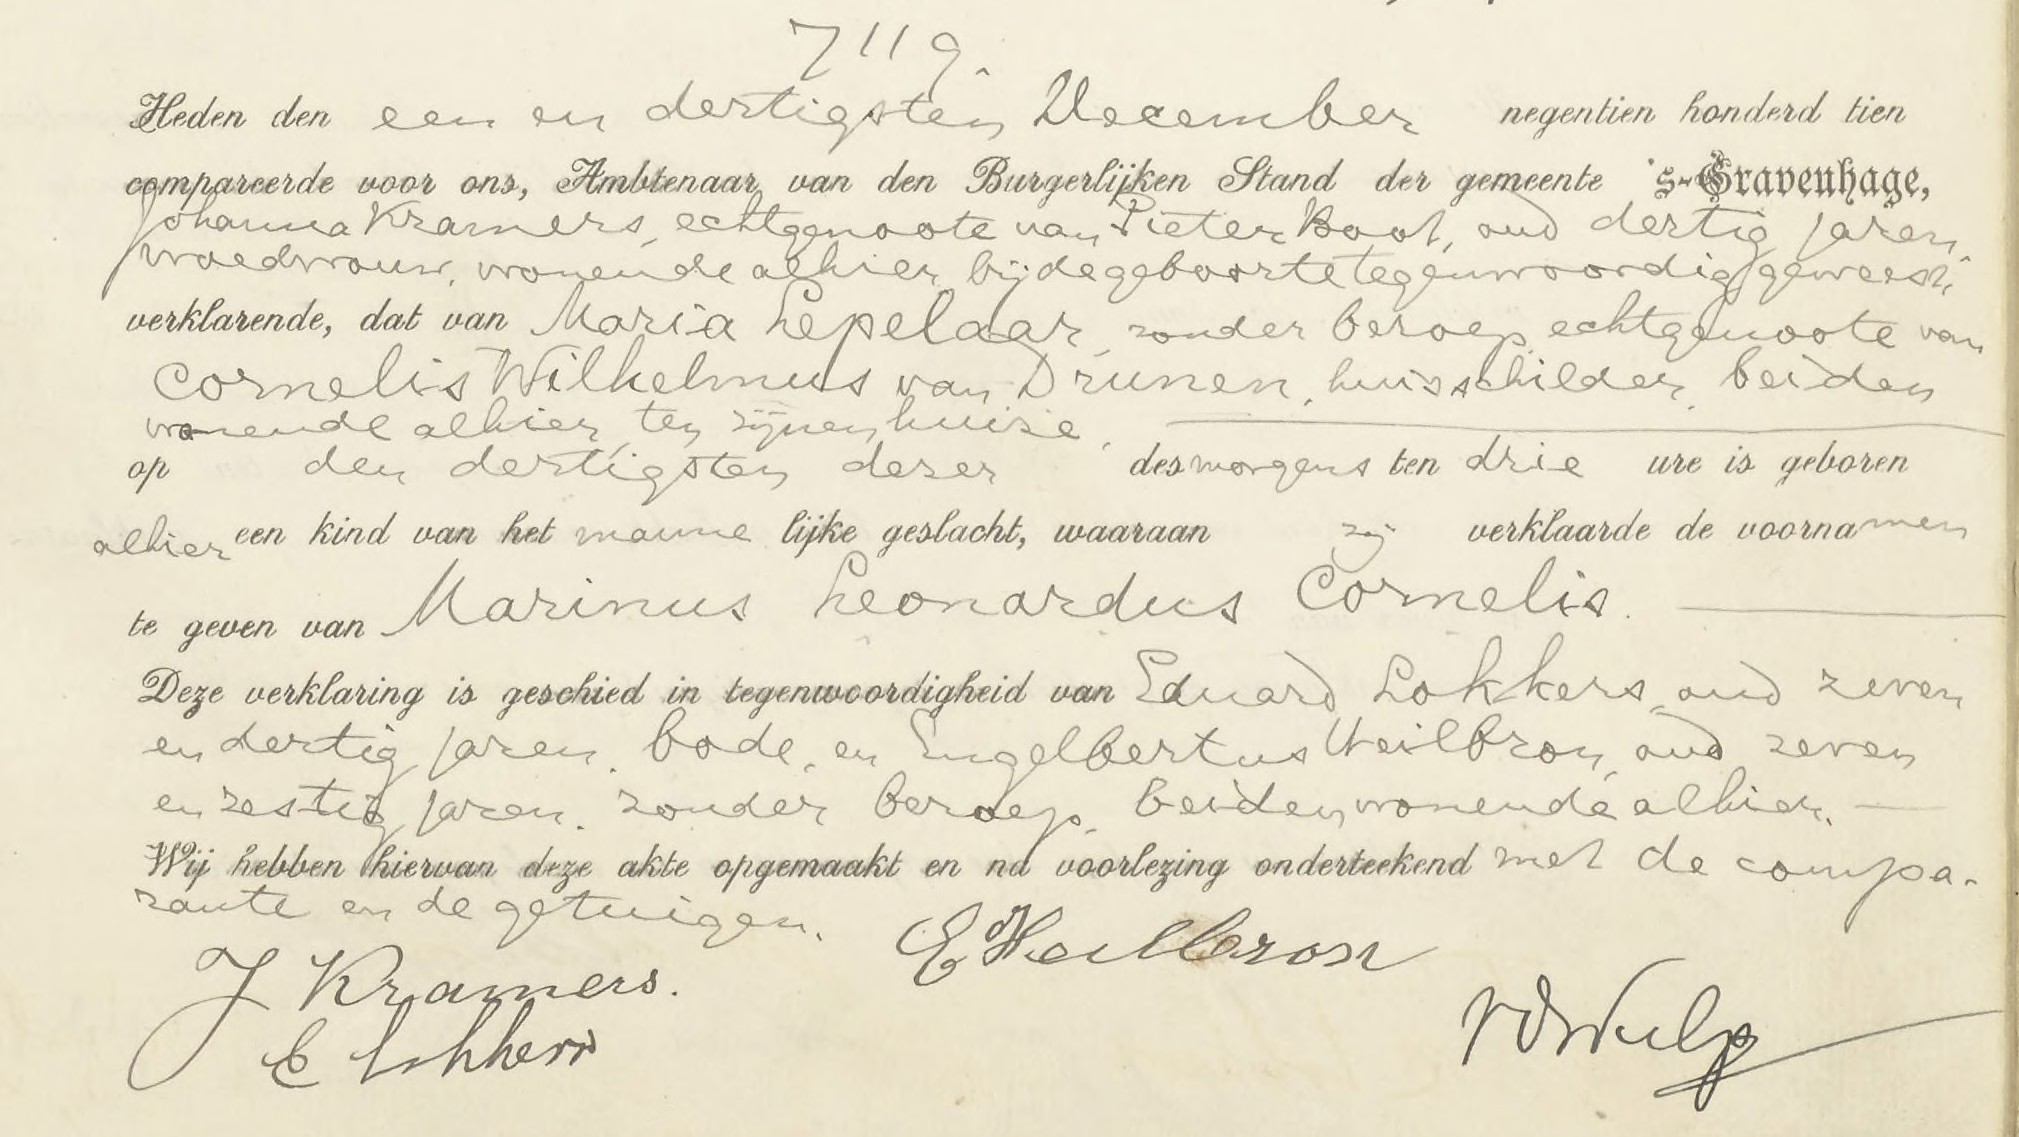 7119.
Heden den een en dertigsten December negentien honderd tien
compareerde voor ons, Ambtenaar van den Burgerlijken Stand der gemeente 's-Gravenhage,
Johanna Kramers, echtgenoote van Pieter Boot, oud dertig jaren,
vroedvrouw, wonende alhier, bij de geboorte tegenwoordig geweest,
verklarende, dat van Maria Lepelaar, zonder beroep, echtgenoote van
Cornelis Wilhelmus van Drunen, huisschilder, beiden
wonende alhier, ten zijnen huize,
op den dertigsten dezer des morgens ten drie ure is geboren
alhier een kind van het manne lijke geslacht, waaraan zij verklaarde de voornamen
te geven van Marinus Leonardus Cornelis.
Deze verklaring is geschied in tegenwoordigheid van Eduard Lokkers, oud zeven
en dertig jaren, bode, en Engelbertus Heilbron, oud zeven
en zestig jaren, zonder beroep, beiden wonende alhier.
Wij hebben hiervan deze akte opgemaakt en na voorlezing onderteekend met de compa-
rante en de getuigen.
J Kramers. E Heilbron
E Lokkers vd Wulp